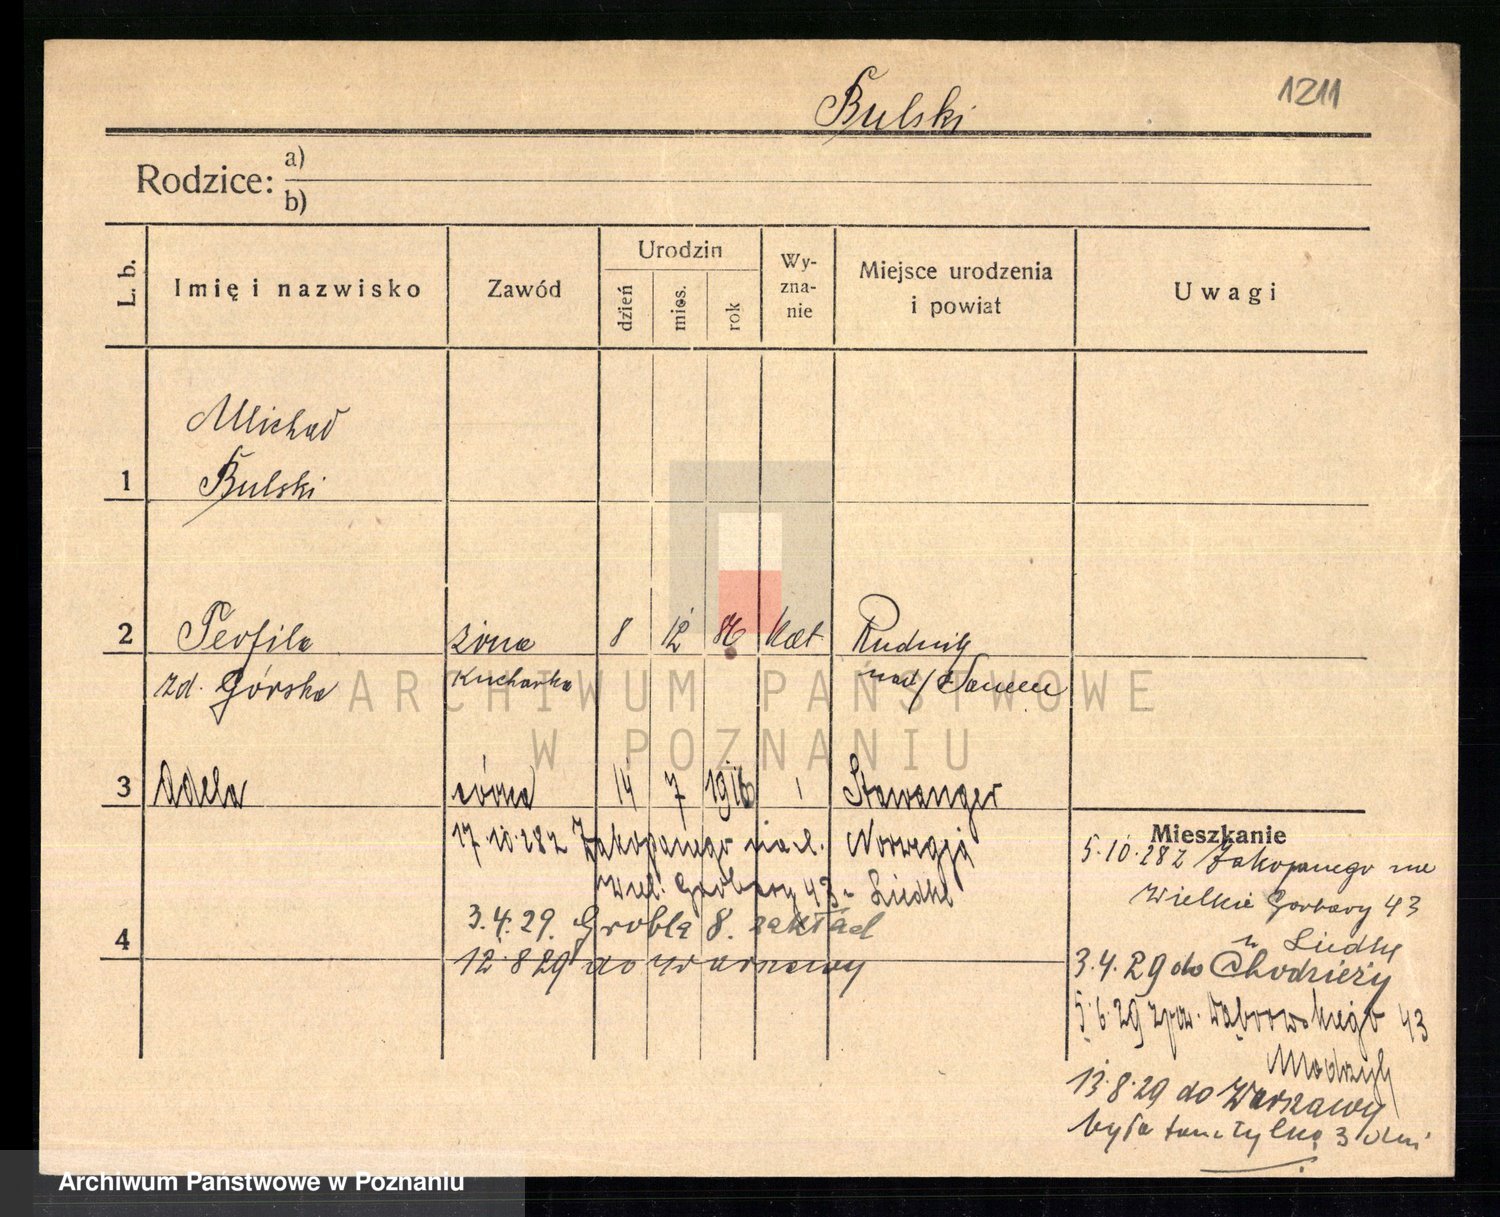 1211
Bulski
Rodzice: a)
b)
L. b.
Imię i nazwisko
Zawód
Urodzin
dzień
mies.
rok
Wy-
zna-
nie
Miejsce urodzenia
i powiat
Uwagi
1
Michał
Bulski
2 Teofila żona 8 12 kat Rudnik
zd. Górska kucharka nad/Sanem
3 Adela córka 14 7 1916 Stawanger
17.10.28 z Zakopanego Norwegja
Wiel. Garbary 43 Liedke
3.4.29. Grobla 8. zakład
4
12.8.29 do Warszawy
Mieszkanie
5.10.28 z Zakopanego na
Wielkie Garbary 43
u Liedke
3.4.29 do Chodzieży
5.6.29 Dąbrowskiego 43
13.8.29 do Warszawy
była tam tylko 3 dni
ARCHIWUM PAŃSTWOWE
W POZNANIU
Archiwum Państwowe w Poznaniu